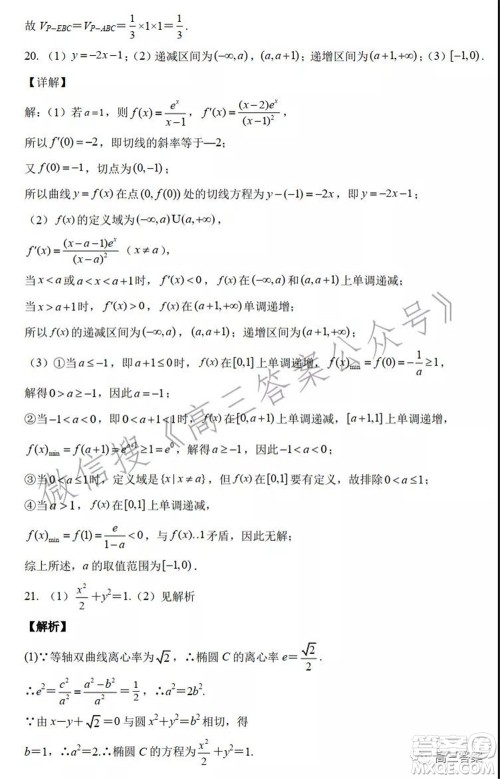 故 V_{P-EBC}=V_{P-ABC}=\frac{1}{3}×1×1=\frac{1}{3}.
20. (1) y=-2x-1; (2) 递减区间为(-∞,a), (a,a+1); 递增区间为(a+1,+∞); (3) [-1,0).
【详解】
解: (1) 若a=1, 则f(x)=\frac{e^x}{x-1}, f'(x)=\frac{(x-2)e^x}{(x-1)^2},
所以f'(0)=-2, 即切线的斜率等于—2;
又f(0)=-1, 切点为(0,-1);
所以曲线y=f(x)在点(0,f(0))处的切线方程为y-(-1)=-2x, 即y=-2x-1;
(2) f(x)的定义域为(-∞,a)U(a,+∞),
f'(x)=\frac{(x-a-1)e^x}{(x-a)^2} (x≠a),
当x<a或a<x<a+1时, f'(x)<0, f(x)在(-∞,a)和(a,a+1)上单调递减;
当x>a+1时, f'(x)>0, f(x)在(a+1,+∞)单调递增;
所以f(x)的递减区间为(-∞,a), (a,a+1); 递增区间为(a+1,+∞).
(3) ①当a≤-1, 即a+1≤0时, f(x)在[0,1]上单调递增, f(x)_{min}=f(0)=-\frac{1}{a}≥1,
解得0>a≥-1, 因此a=-1;
②当-1<a<0, 即0<a+1<1时, f(x)在[0,a+1]上单调递减, [a+1,1]上单调递增,
f(x)_{min}=f(a+1)=e^{a+1}≥1=e^0, 解得a≥-1, 因此-1<a<0;
③当0≤a≤1时, 定义域是{x|x≠a}, 但f(x)在[0,1]要有定义, 故排除0≤a≤1;
④当a>1, f(x)在[0,1]上单调递减,
f(x)_{min}=f(1)=\frac{e}{1-a}<0, 与f(x)..1矛盾, 因此无解;
综上所述, a的取值范围为[-1,0).
21. (1) \frac{x^2}{2}+y^2=1.(2) 见解析
【解析】
(1)∵等轴双曲线离心率为\sqrt{2}, ∴椭圆 C 的离心率 e=\frac{\sqrt{2}}{2}.
∴e^2=\frac{c^2}{a^2}=\frac{a^2-b^2}{a^2}=\frac{1}{2}, ∴a^2=2b^2.
∵由 x-y+\sqrt{2}=0 与圆 x^2+y^2=b^2 相切, 得
b=1, ∴a^2=2.∴椭圆 C 的方程为\frac{x^2}{2}+y^2=1.
微信搜《高三答案公众号》
高三答案